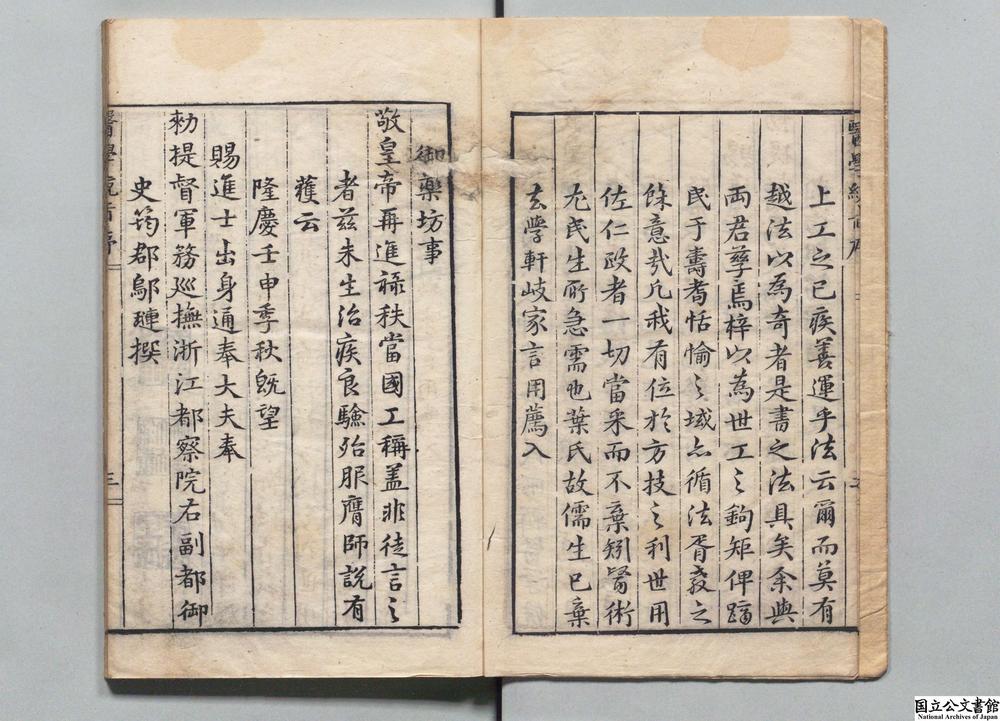 上工之已疾善運乎法云爾而莫有
越法以為奇者是書之法具矣余與
両君孳焉梓以為世工之鉤矩俾躋
民于壽耉恬愉之域亦循法胥教之
餘意㢤凢我有位於方技之利世用
佐仁政者一切當采而不棄矧醫術
尤民生所急需也葉氏故儒生已棄
去學軒岐家言用薦入
御藥坊事
敬皇帝再進祿秩當國工稱盖非徒言之
者兹朱生治疾良驗殆服膺師說有
獲云
隆慶壬申季秋旣望
賜進士出身通奉大夫奉
勑提督軍務廵撫浙江都察院右副都御
史筠郡鄔璉撰
三
国立公文書館
National Archives of Japan